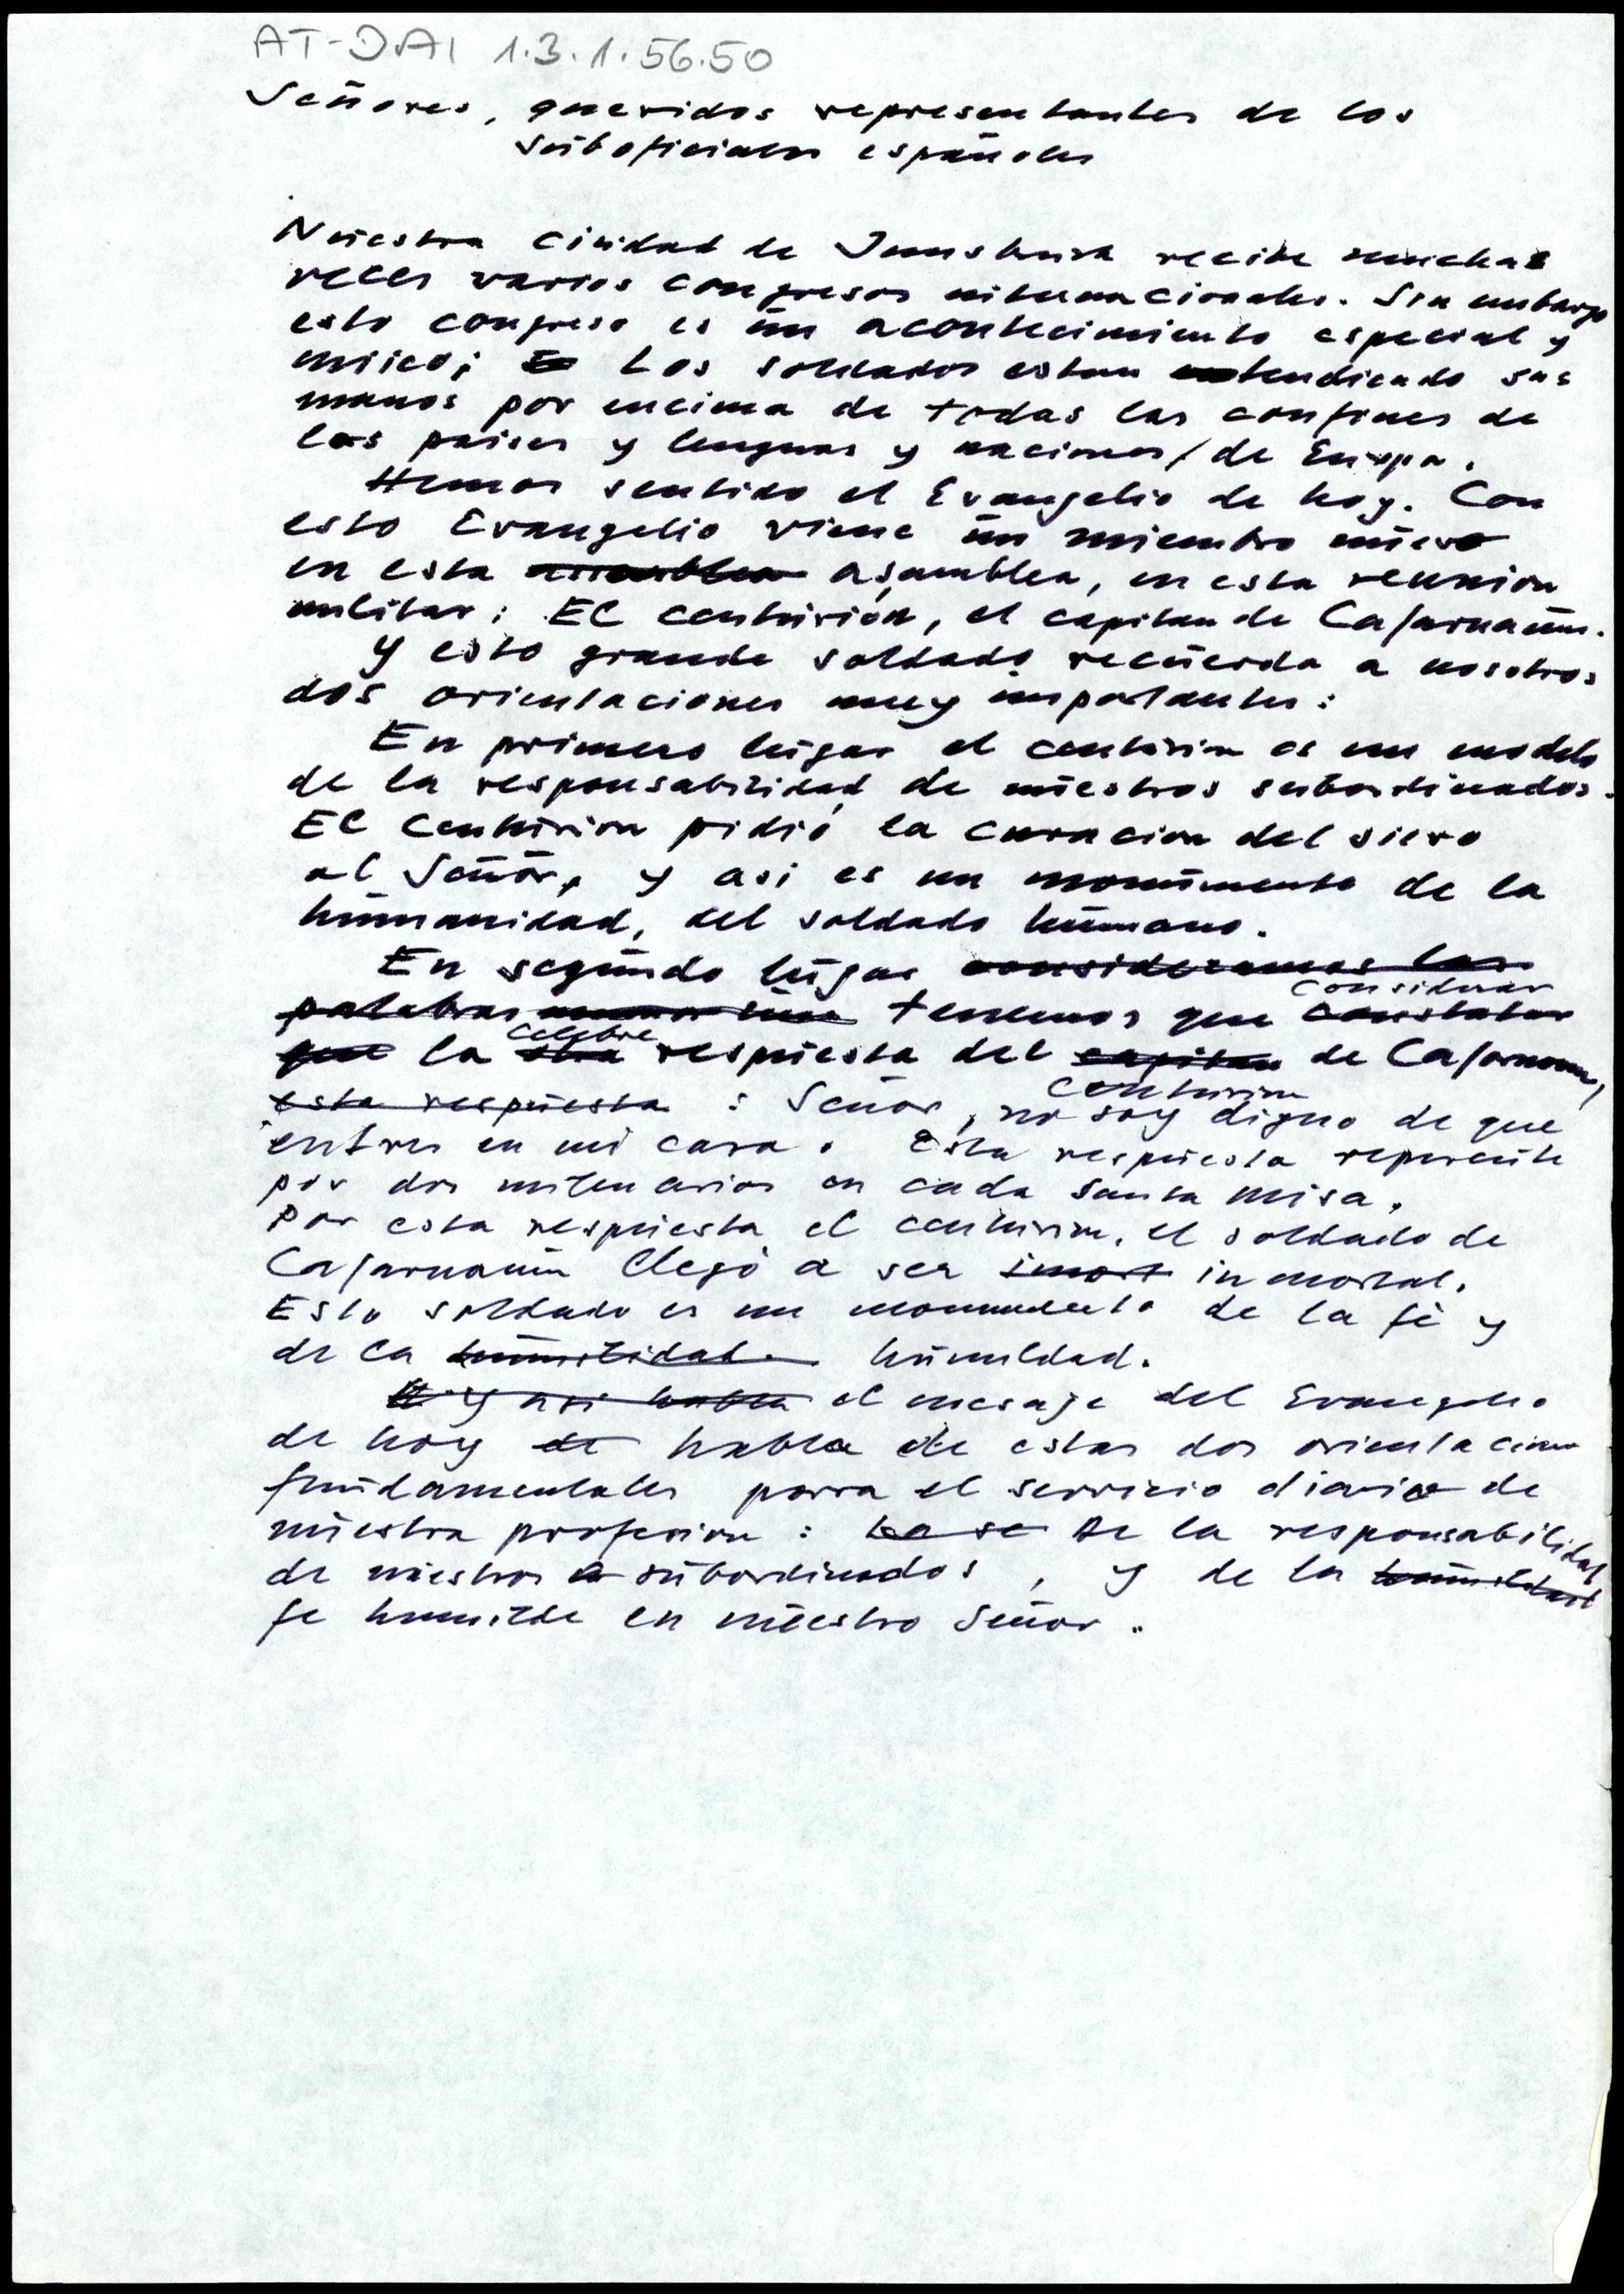 AT-DAI 1.3.1.56.50
Señores, queridos representantes de los
suboficiales españoles
Nuestra ciudad de Innsbruck recibe muchas
veces varios congresos internacionales. Sin embargo
esto congreso es un acontecimiento especial y
unico; Los soldados estan tendiendo sus
manos por encima de todas las confines de
los paises y lenguas y naciones / de Europa.
Hemos sentido el Evangelio de hoy. Con
esto Evangelio viene un miembro nuevo
en esta asamblea, en esta reunion
militar: El centurión, el capitan de Cafarnaum.
Y esto grande soldado recuerda a nosotros
dos orientaciones muy importantes:
En primero lugar el centurion es un modelo
de la responsabilidad de nuestros subordinados.
El Centurion pidió la curacion del siervo
al Señor, y asi es un monumento de la
humanidad, del soldado humano.
En segundo lugar consideramos las
considerar
palabras tenemos que constatar
celebre
que la otra respuesta del capitan de Cafarnaum,
centurion
esta respuesta : Señor, no soy digno de que
entres en mi casa. Esta respuesta repercute
por dos milenarios en cada santa misa.
Por esta respuesta el centurion, el soldado de
Cafarnaum llegó a ser imort inmortal.
Esto soldado es un monumento de la fé y
de la humilidad humildad.
Y asi habla el mesaje del Evangelio
de hoy de habla de estas dos orientaciones
fundamentales parra el servicio diario de
nuestra profesion : De la responsabilidad
de nuestros subordinados, y de la humildad
fe humilde en nuestro Señor.